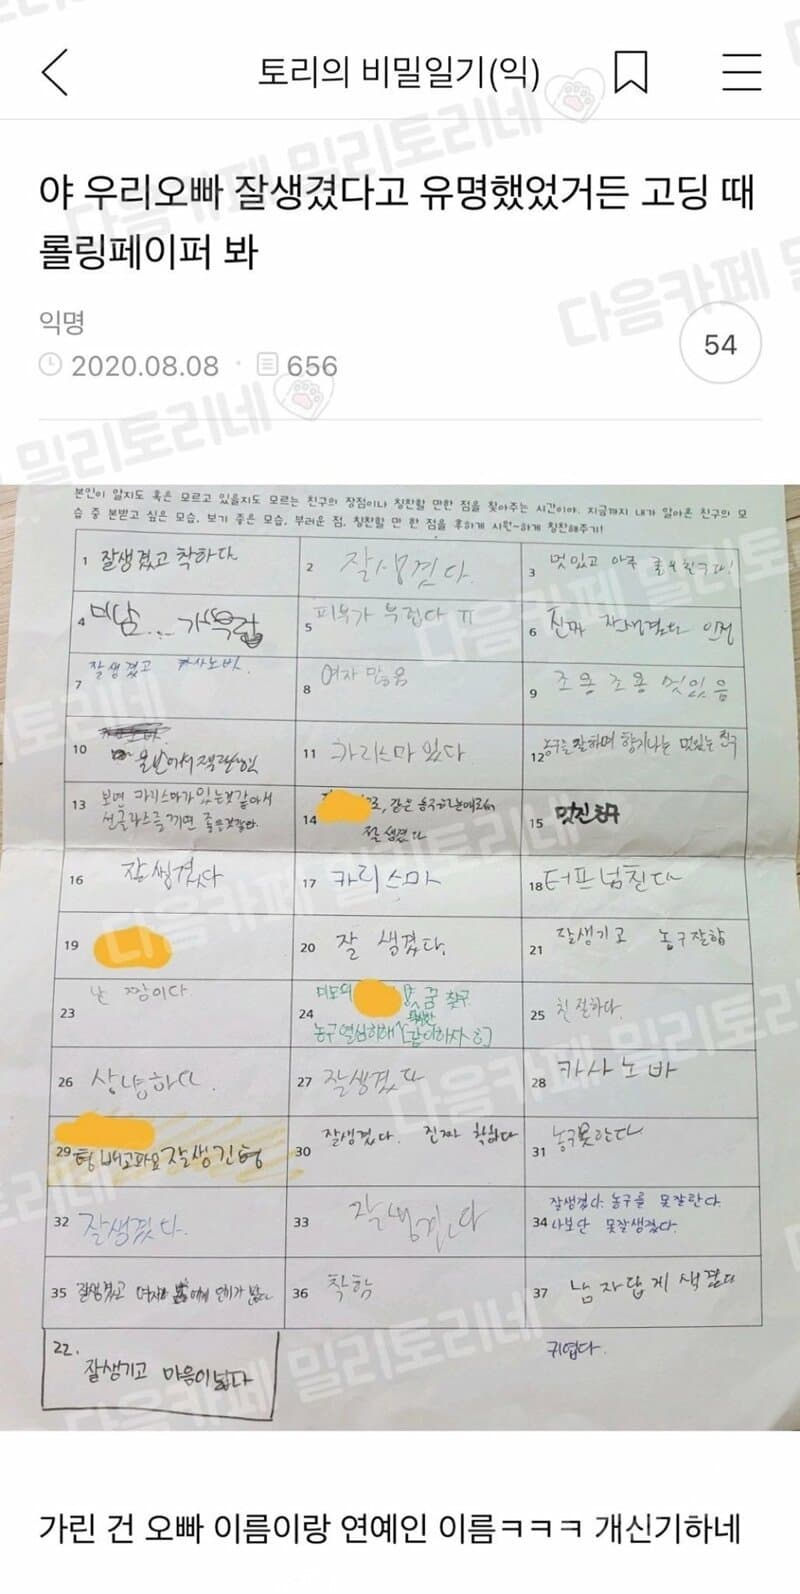 토리의 비밀일기(익)
야 우리오빠 잘생겼다고 유명했었거든 고딩 때
롤링페이퍼 봐
익명
2020.08.08 · 656
54
본인이 알지도 혹은 모르고 있을지도 모르는 친구의 장점이나 칭찬할 만한 점을 찾아주는 시간이야. 지금까지 내가 알아온 친구의 모
습 중 본받고 싶은 모습, 보기 좋은 모습, 부러운 점, 칭찬할 만 한 점을 후하게 시원~하게 칭찬해주기!
1 잘생겼고 착하다
2 잘생겼다.
3 멋있고 아주 좋은 친구다!
4 미남...
5 피부가 부럽다 ㅠ
6 진짜 잘생겼다 인정
7 잘생겼고 카사노바.
8 여자 많음
9 조용조용 멋있음
10
11 카리스마 있다
12 농구를 잘하며 향기나는 멋있는 친구
13 보면 카리스마가 있는것 같아서
선글라스를 끼면 좋을것같아.
14 같은
잘생겼다
15 멋진친구
16 잘생겼다
17 카리스마
18 터프넘친다
19
20 잘 생겼다.
21 잘생기고 농구잘함
23 난 짱이다.
24 미모의 꿈 찾구
농구 열심히해 [같이하자 ㅎ]
25 친절하다.
26 상냥하다.
27 잘생겼다
28 카사노바
29 형 배고파요 잘생긴형
30 잘생겼다. 진짜 착하다
31 농구못한다
32 잘생겼다.
33 잘생겼다
34 잘생겼다. 농구를 못잘한다.
나보단 못잘생겼다.
35 잘생겼고 인기가 많다
36 착함
37 남자답게 생겼다
22. 잘생기고 마음이넓다
귀엽다.
가린 건 오빠 이름이랑 연예인 이름ㅋㅋㅋ 개신기하네
다음카페 밀리토리네